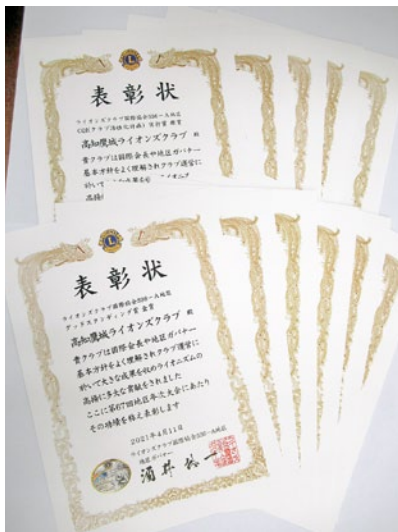 表彰状
ライオンズクラブ国際協会336-A地区
高知鷹城ライオンズクラブ 殿
貴クラブは国際会長や地区ガバナー
基本方針をよく理解されクラブ運営に
表彰状
ライオンズクラブ国際協会336-A地区
グッドスタンディング賞 金賞
高知鷹城ライオンズクラブ 殿
貴クラブは国際会長や地区ガバナー
基本方針をよく理解されクラブ運営に
於いて大きな成果を収めライオニズムの
高揚に多大な貢献をされました
ここに第67回地区年次大会にあたり
その功績を称え表彰します
2021年4月11日
ライオンズクラブ国際協会336-A地区
地区ガバナー